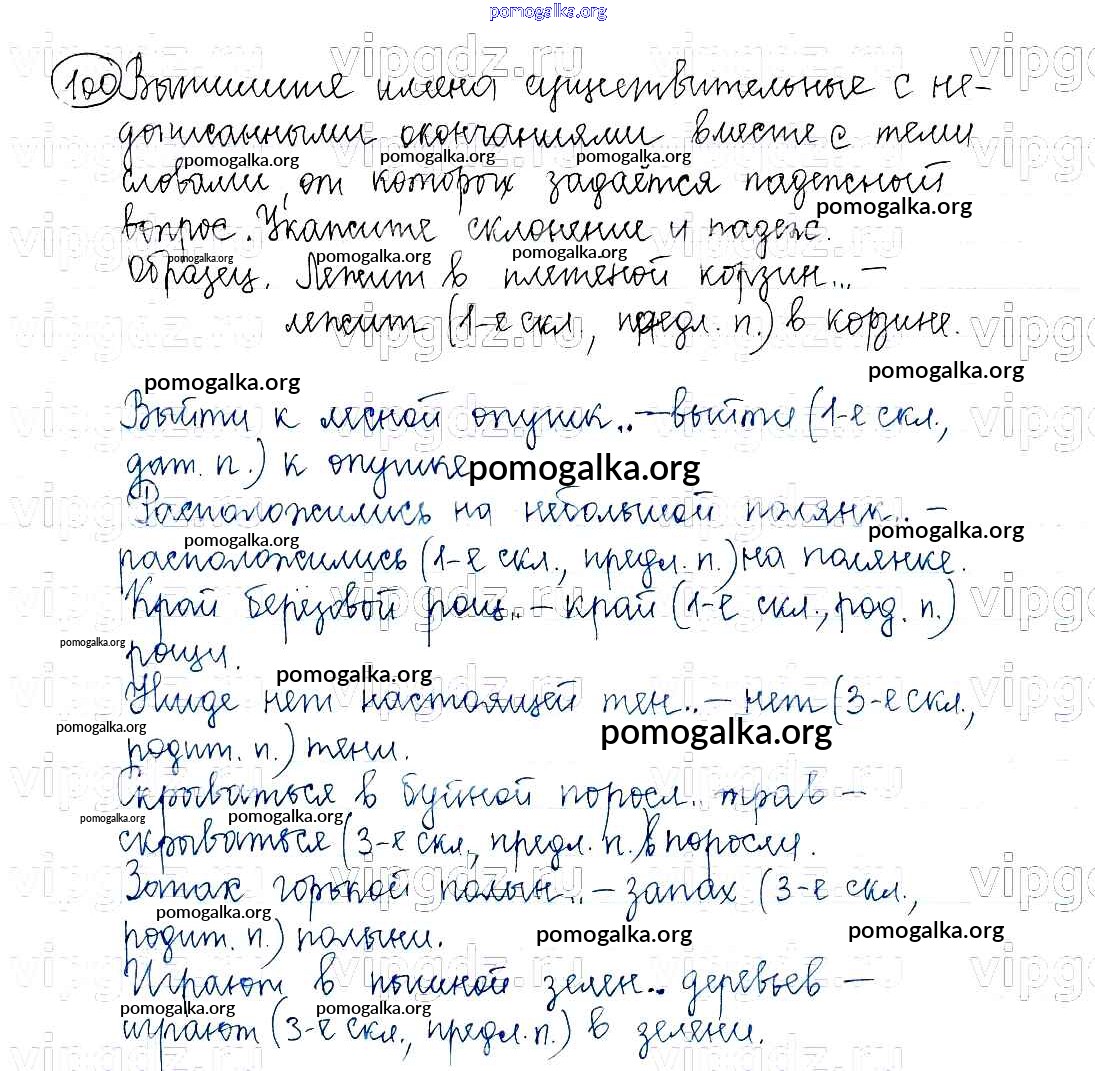 pomogalka.org
100 Выпишите имена существительные с не-
дописанными окончаниями вместе с теми
словами, от которых задаётся падежный
вопрос. Укажите склонение и падеж.
Образец. Лежит в плетеной корзин... –
лежит (1-е скл., предл. п.) в корзине.
Выйти к лесной опушк.. – выйти (1-е скл.,
дат. п.) к опушке
Расположились на небольшой полянк.. –
расположились (1-е скл., предл. п.) на полянке.
Край берёзовой рощ.. – край (1-е скл., род. п.)
рощи.
Нигде нет настоящей тен.. – нет (3-е скл.,
родит. п.) тени.
Скрываться в буйной поросл.. трав –
скрываться (3-е скл., предл. п.) в поросли.
Запах горькой полын.. – запах (3-е скл.,
родит. п.) полыни.
Играют в пышной зелен.. деревьев –
играют (3-е скл., предл. п.) в зелени.